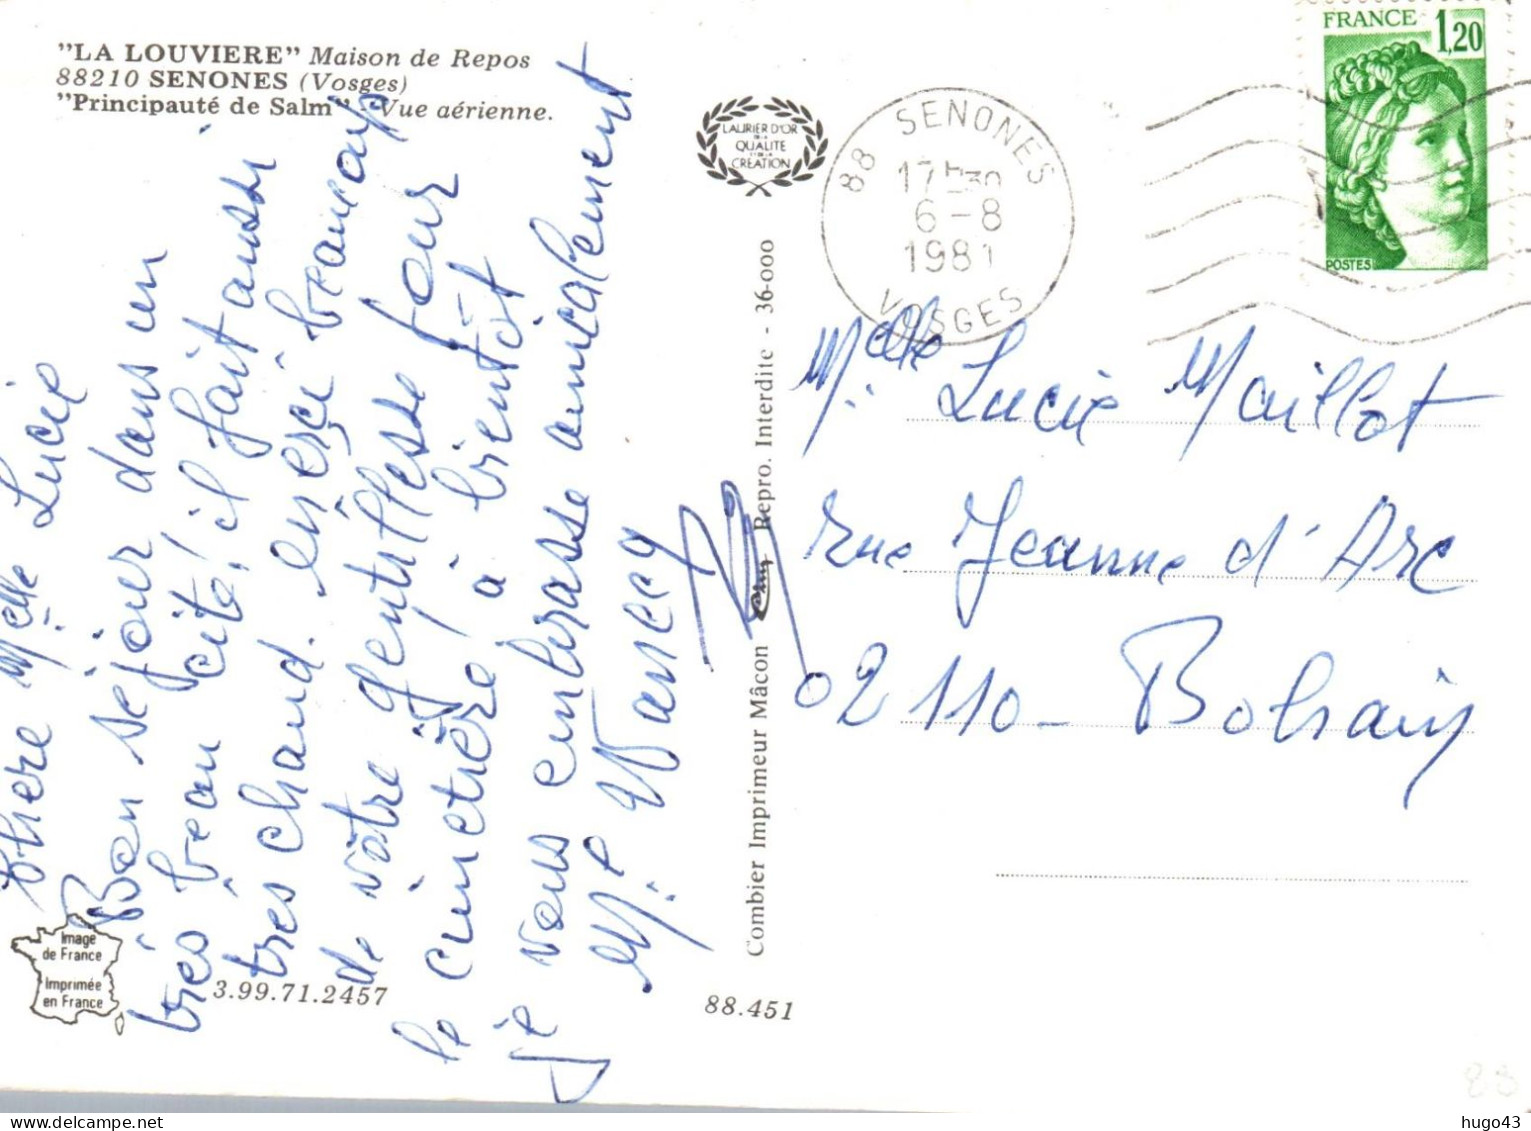 "LA LOUVIERE" Maison de Repos
88210 SENONES (Vosges)
"Principauté de Salm" - Vue aérienne.
LAURIER D'OR
DE LA
QUALITE
ET DE LA
CREATION
88 SENONES
17H30
6-8
1981
VOSGES
FRANCE 1,20
POSTES
chère Melle Lucie
Bon séjour dans un
très beau cité! il fait aussi
très chaud. merci beaucoup
de vôtre gentillesse pour
le cimetière, à bientôt
je vous embrasse amicalement
Me
Melle Lucie Maillot
rue Jeanne d'Arc
02110 - Bohain
Combier Imprimeur Mâcon cim Repro. Interdite - 36-000
Image
de France
Imprimée
en France
3.99.71.2457
88.451
hugo43